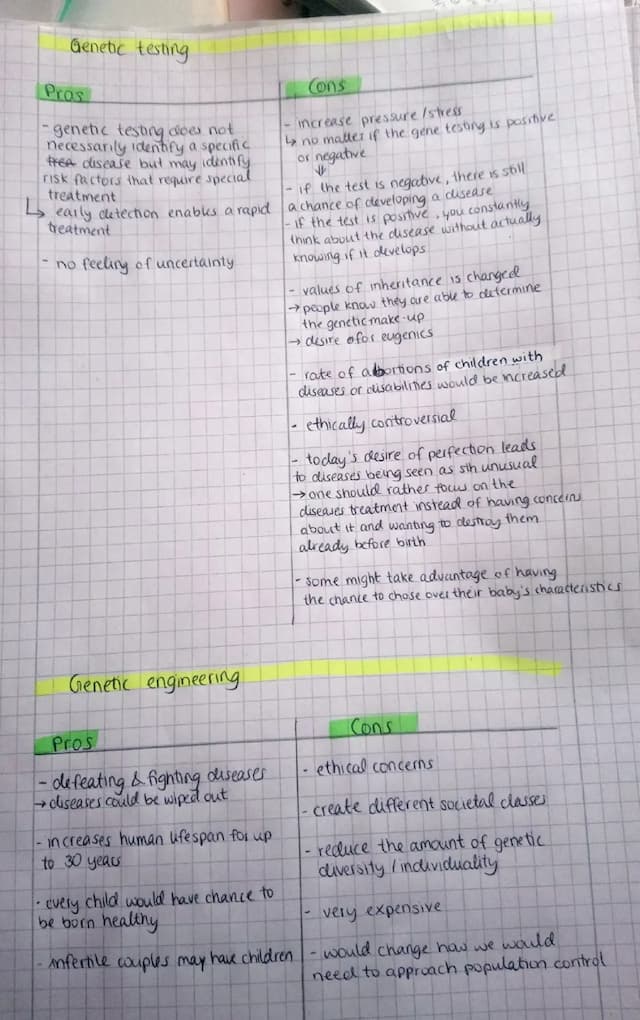 Genetic testing
Pros
- genetic testing does not
necessarily identify a specific
disease but may identify
risk factors that require special
treatment
↳ early detection enables a rapid
treatment
- no feeling of uncertainty
Cons
- increase pressure/stress
↳ no matter if the gene testing is positive
or negative
↓
- if the test is negative, there is still
a chance of developing a disease
- if the test is positive, you constantly
think about the disease without actually
knowing if it develops
- values of inheritance is changed
→ people know they are able to determine
the genetic make-up
→ desire for eugenics
- rate of abortions of children with
diseases or disabilities would be increased
- ethically controversial
- today's desire of perfection leads
to diseases being seen as sth unusual
→ one should rather focus on the
diseases treatment instead of having concerns
about it and wanting to destroy them
already before birth
- some might take advantage of having
the chance to chose over their baby's characteristics
Genetic engineering
Pros
- defeating & fighting diseases
→ diseases could be wiped out
- increases human lifespan for up
to 30 years
- every child would have chance to
be born healthy
- infertile couples may have children
Cons
- ethical concerns
- create different societal classes
- reduce the amount of genetic
diversity / individuality
- very expensive
- would change how we would
need to approach population control